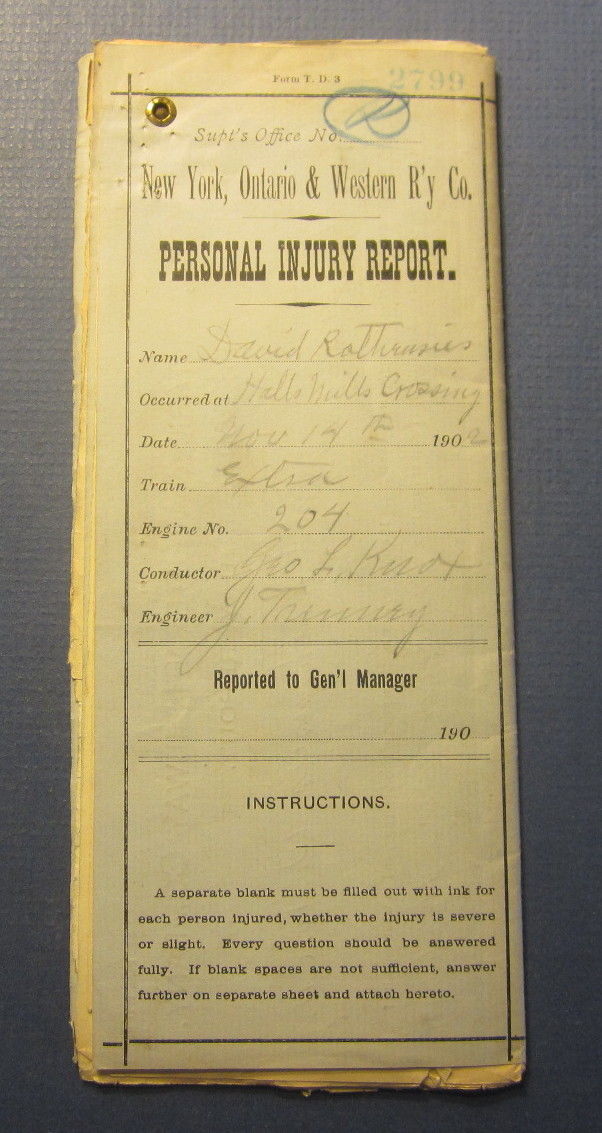 Form T. D. 3
2799
Supt's Office No.
New York, Ontario & Western R'y Co.
PERSONAL INJURY REPORT.
Name David
Occurred at Halls Mills Crossing
Date Nov 14 th 1902
Train Extra
Engine No. 204
Conductor Geo L. Knox
Engineer J.
Reported to Gen'l Manager
190
INSTRUCTIONS.
A separate blank must be filled out with ink for
each person injured, whether the injury is severe
or slight. Every question should be answered
fully. If blank spaces are not sufficient, answer
further on separate sheet and attach hereto.